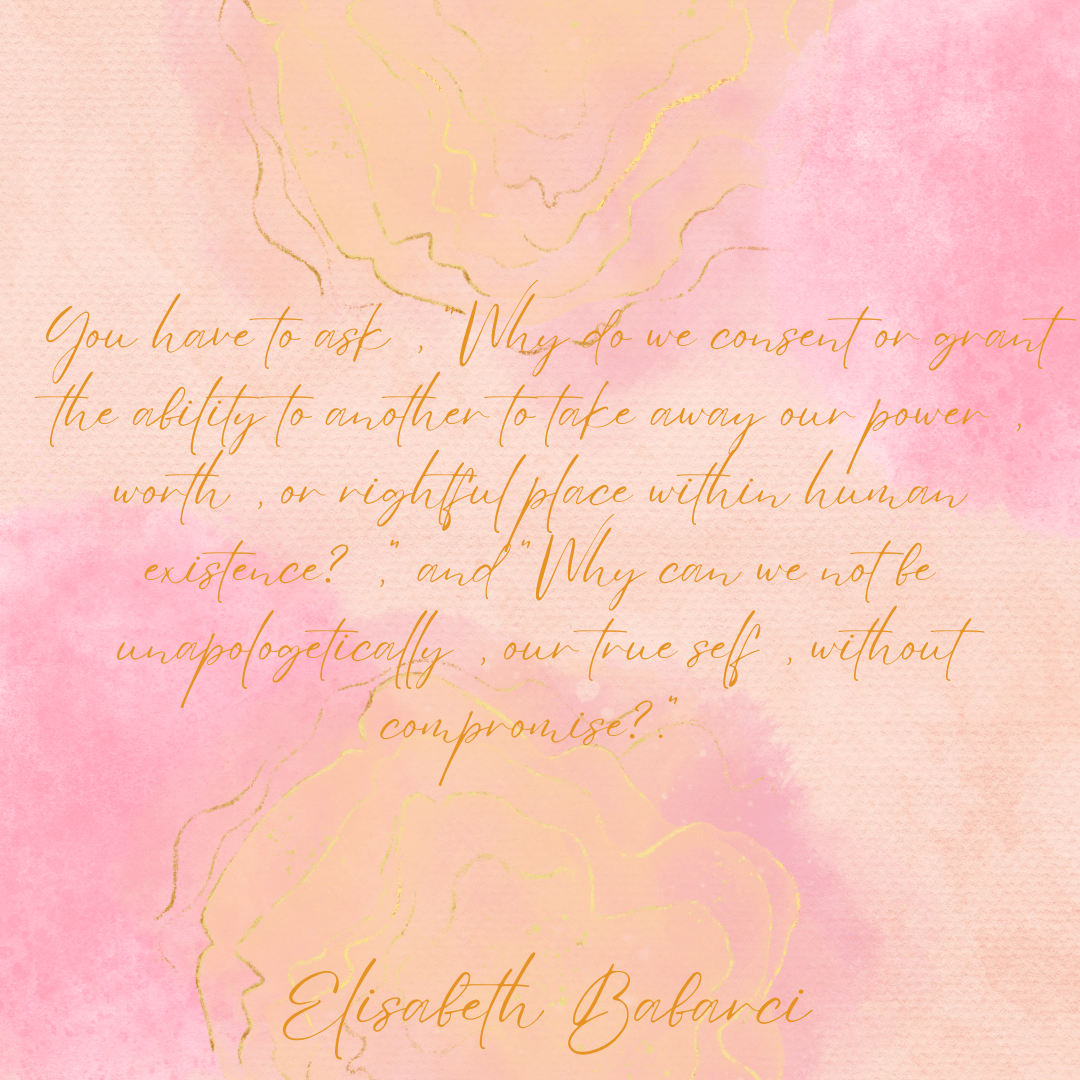 You have to ask , "Why do we consent or grant
the ability to another to take away our power ,
worth , or rightful place within human
existence? ," and "Why can we not be
unapologetically , our true self , without
compromise?."
Elisabeth Babarci